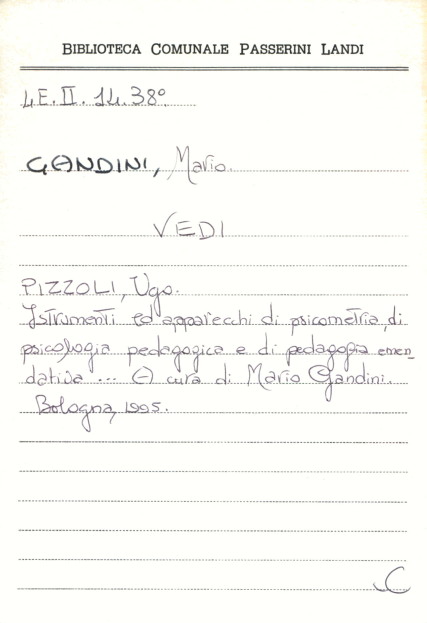 BIBLIOTECA COMUNALE PASSERINI LANDI
4E.II.14.38°
GANDINI, Mario.
VEDI
PIZZOLI, Ugo.
Istrumenti ed apparecchi di psicometria, di
psicologia pedagogica e di pedagogia emen_
dativa ... A cura di Mario Gandini.
Bologna, 1995.
C